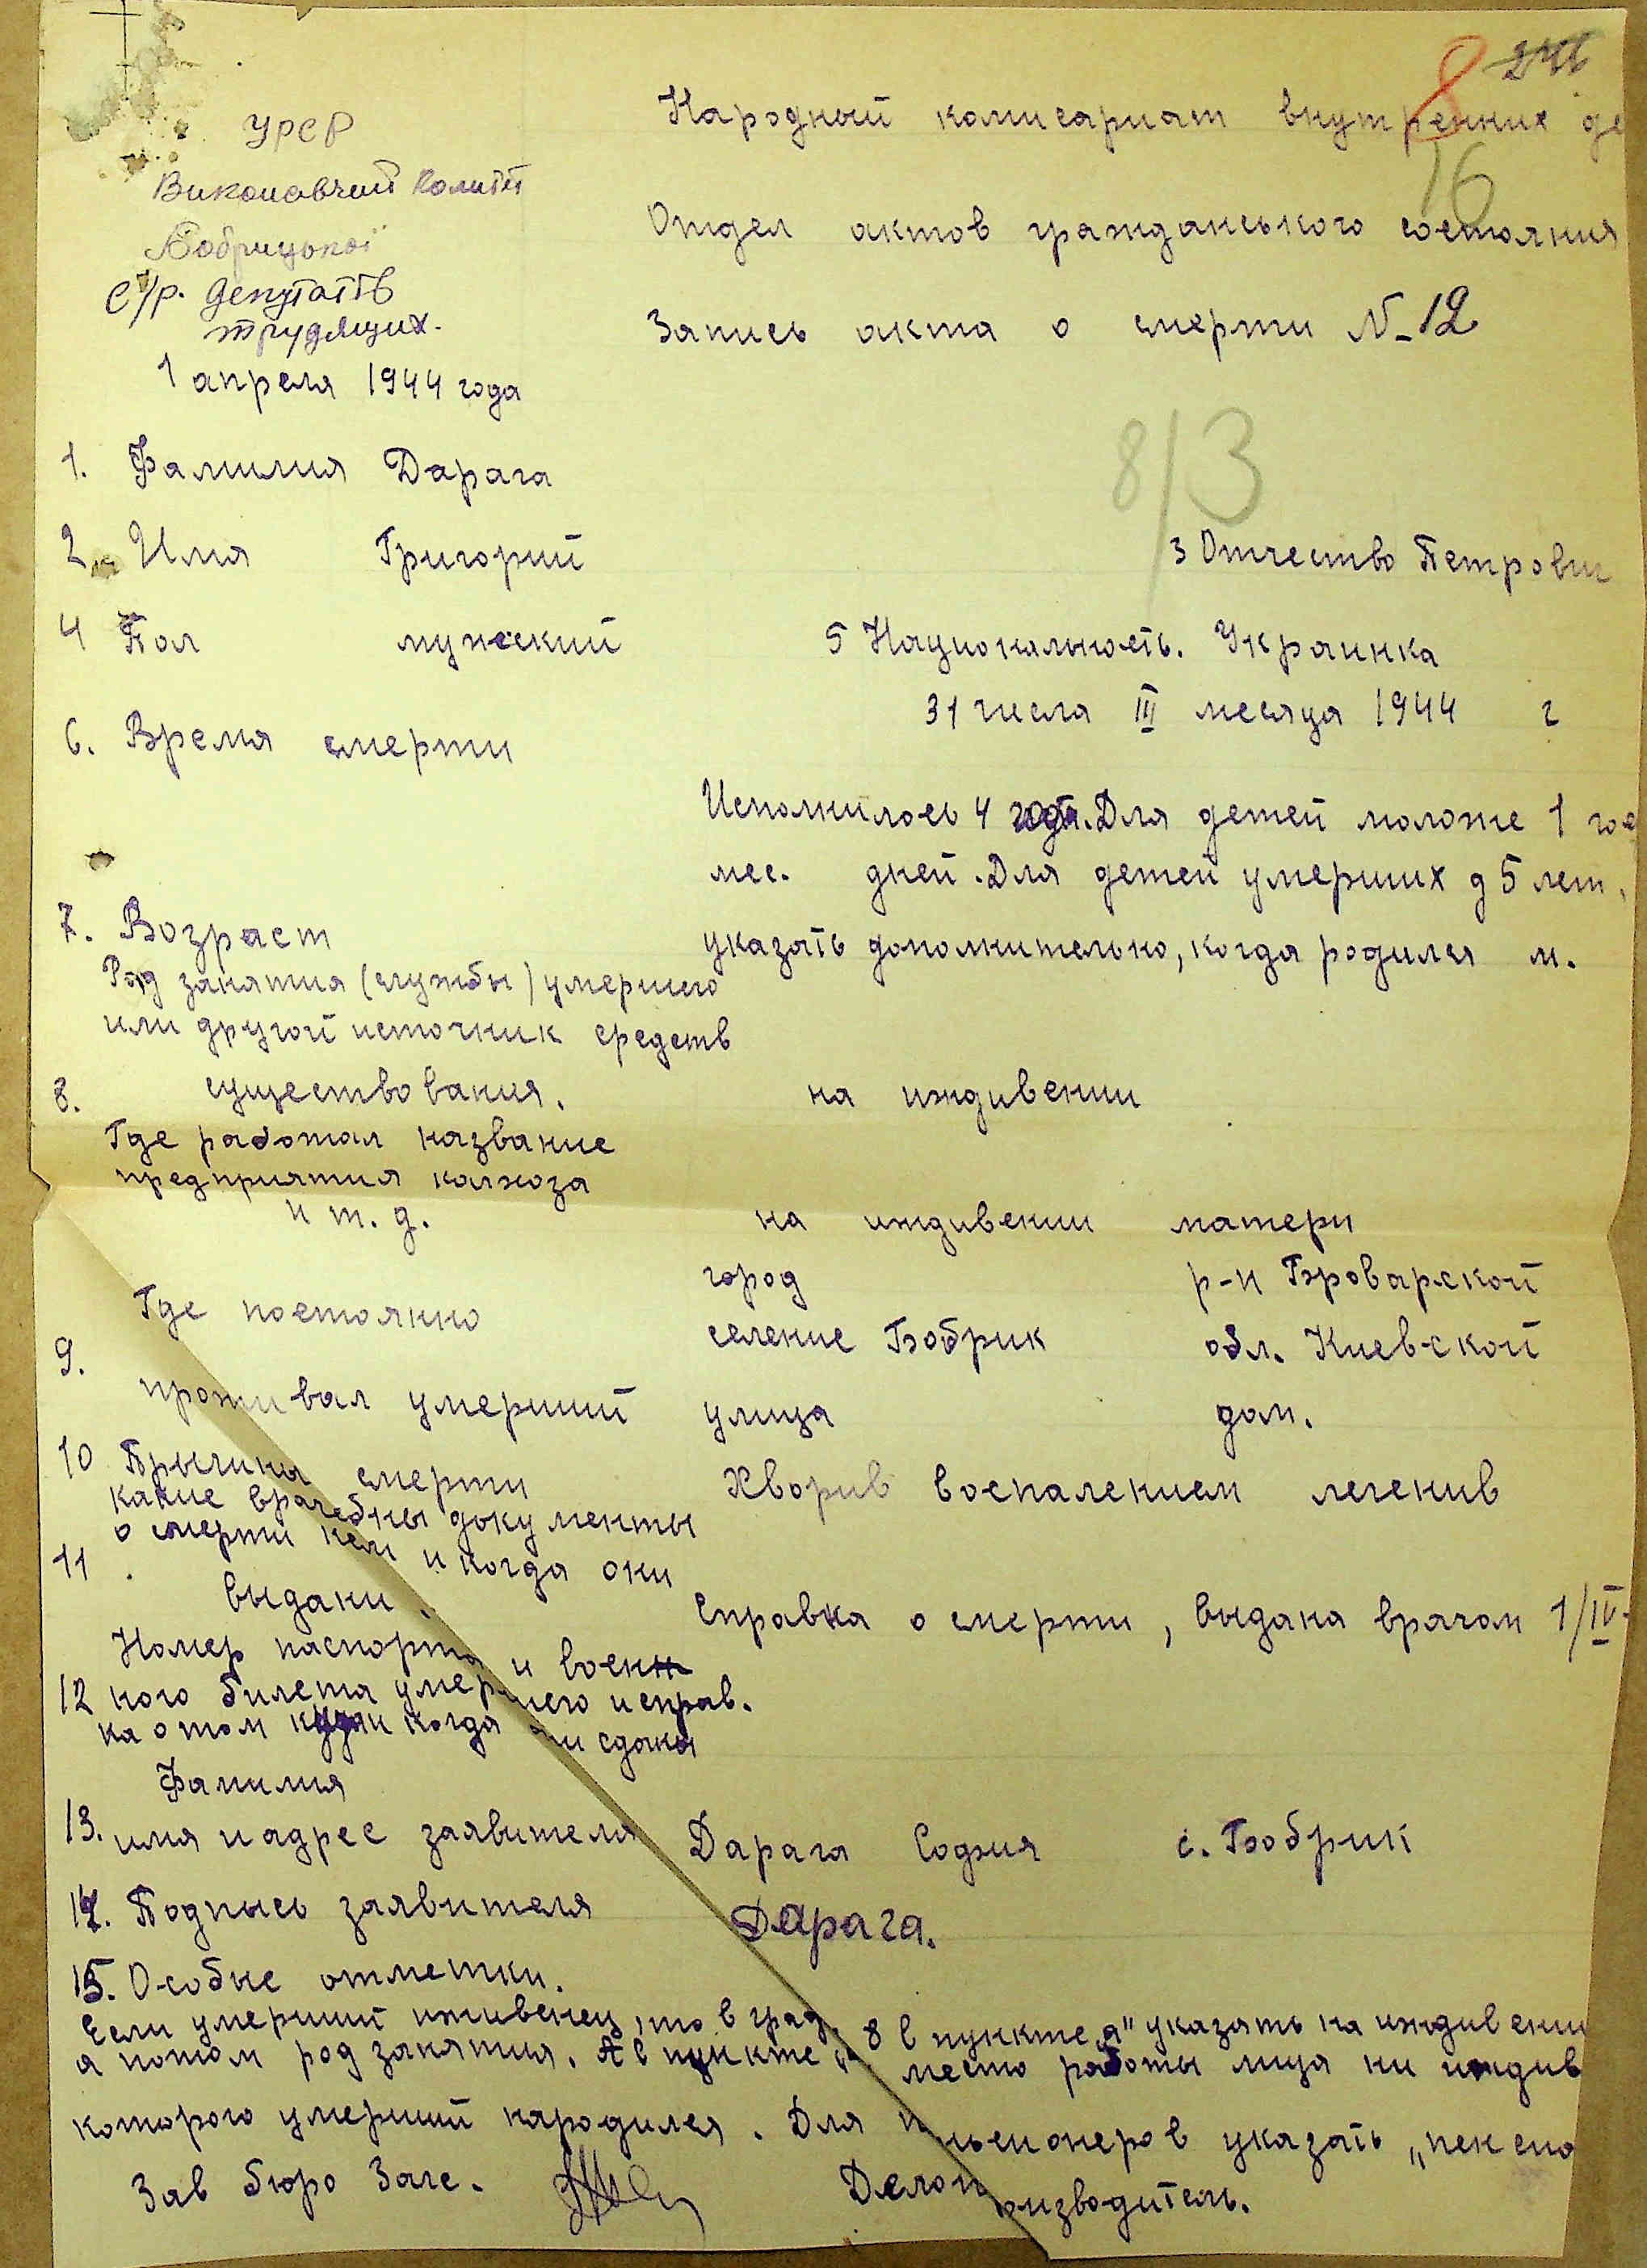 8 246
16
УРСР
Виконавчий Комітет
Бобрицької
с/р. депутатів
трудящих.
1 апреля 1944 года
Народный комисариат внутренних де
Отдел актов гражданського состояния
Запись акта о смерти №12
8/3
1. Фамилия Дарага
2. Имя Григорий 3 Отчество Петрович
4 Пол мужский 5 Национальность. Украинка
6. Время смерти 31 числа III месяца 1944 г
Исполнилось 4 года. Для детей моложе 1 год
мес. дней. Для детей умерших д 5 лет,
7. Возраст указать дополнительно, когда родился м.
Род занятия (службы) умершего
или другой источник средств
8. существования. на иждивении
Где работал название
предприятия колхоза
и т. д. на иждивении матери
город р-н Броварской
Где постоянно
9. селение Бобрик обл. Киевской
проживал умерший улица дом.
10 Прычины смерти Хворив воспалением легенив
какие врачебны документы
о смерти кем и когда они
11. выдани. Справка о смерти, выдана врачом 1/IV.
Номер паспорта и воен
12 ного билета умершего исправ.
ка о том куда и когда они сдани
Фамилия
13. имя и адрес заявителя Дарага София с. Бобрик
14. Подпысь заявителя Дарага.
15. Особые отметки.
Если умерший иживенец, то в граф. 8 в пункте „а" указать на иждивении
а потом род занятия. А в пункте место работы лица ни иждив
которого умерший народился. Для пеньсионеров указать „пенсио
Зав бюро Загс. Делопроизводитель.